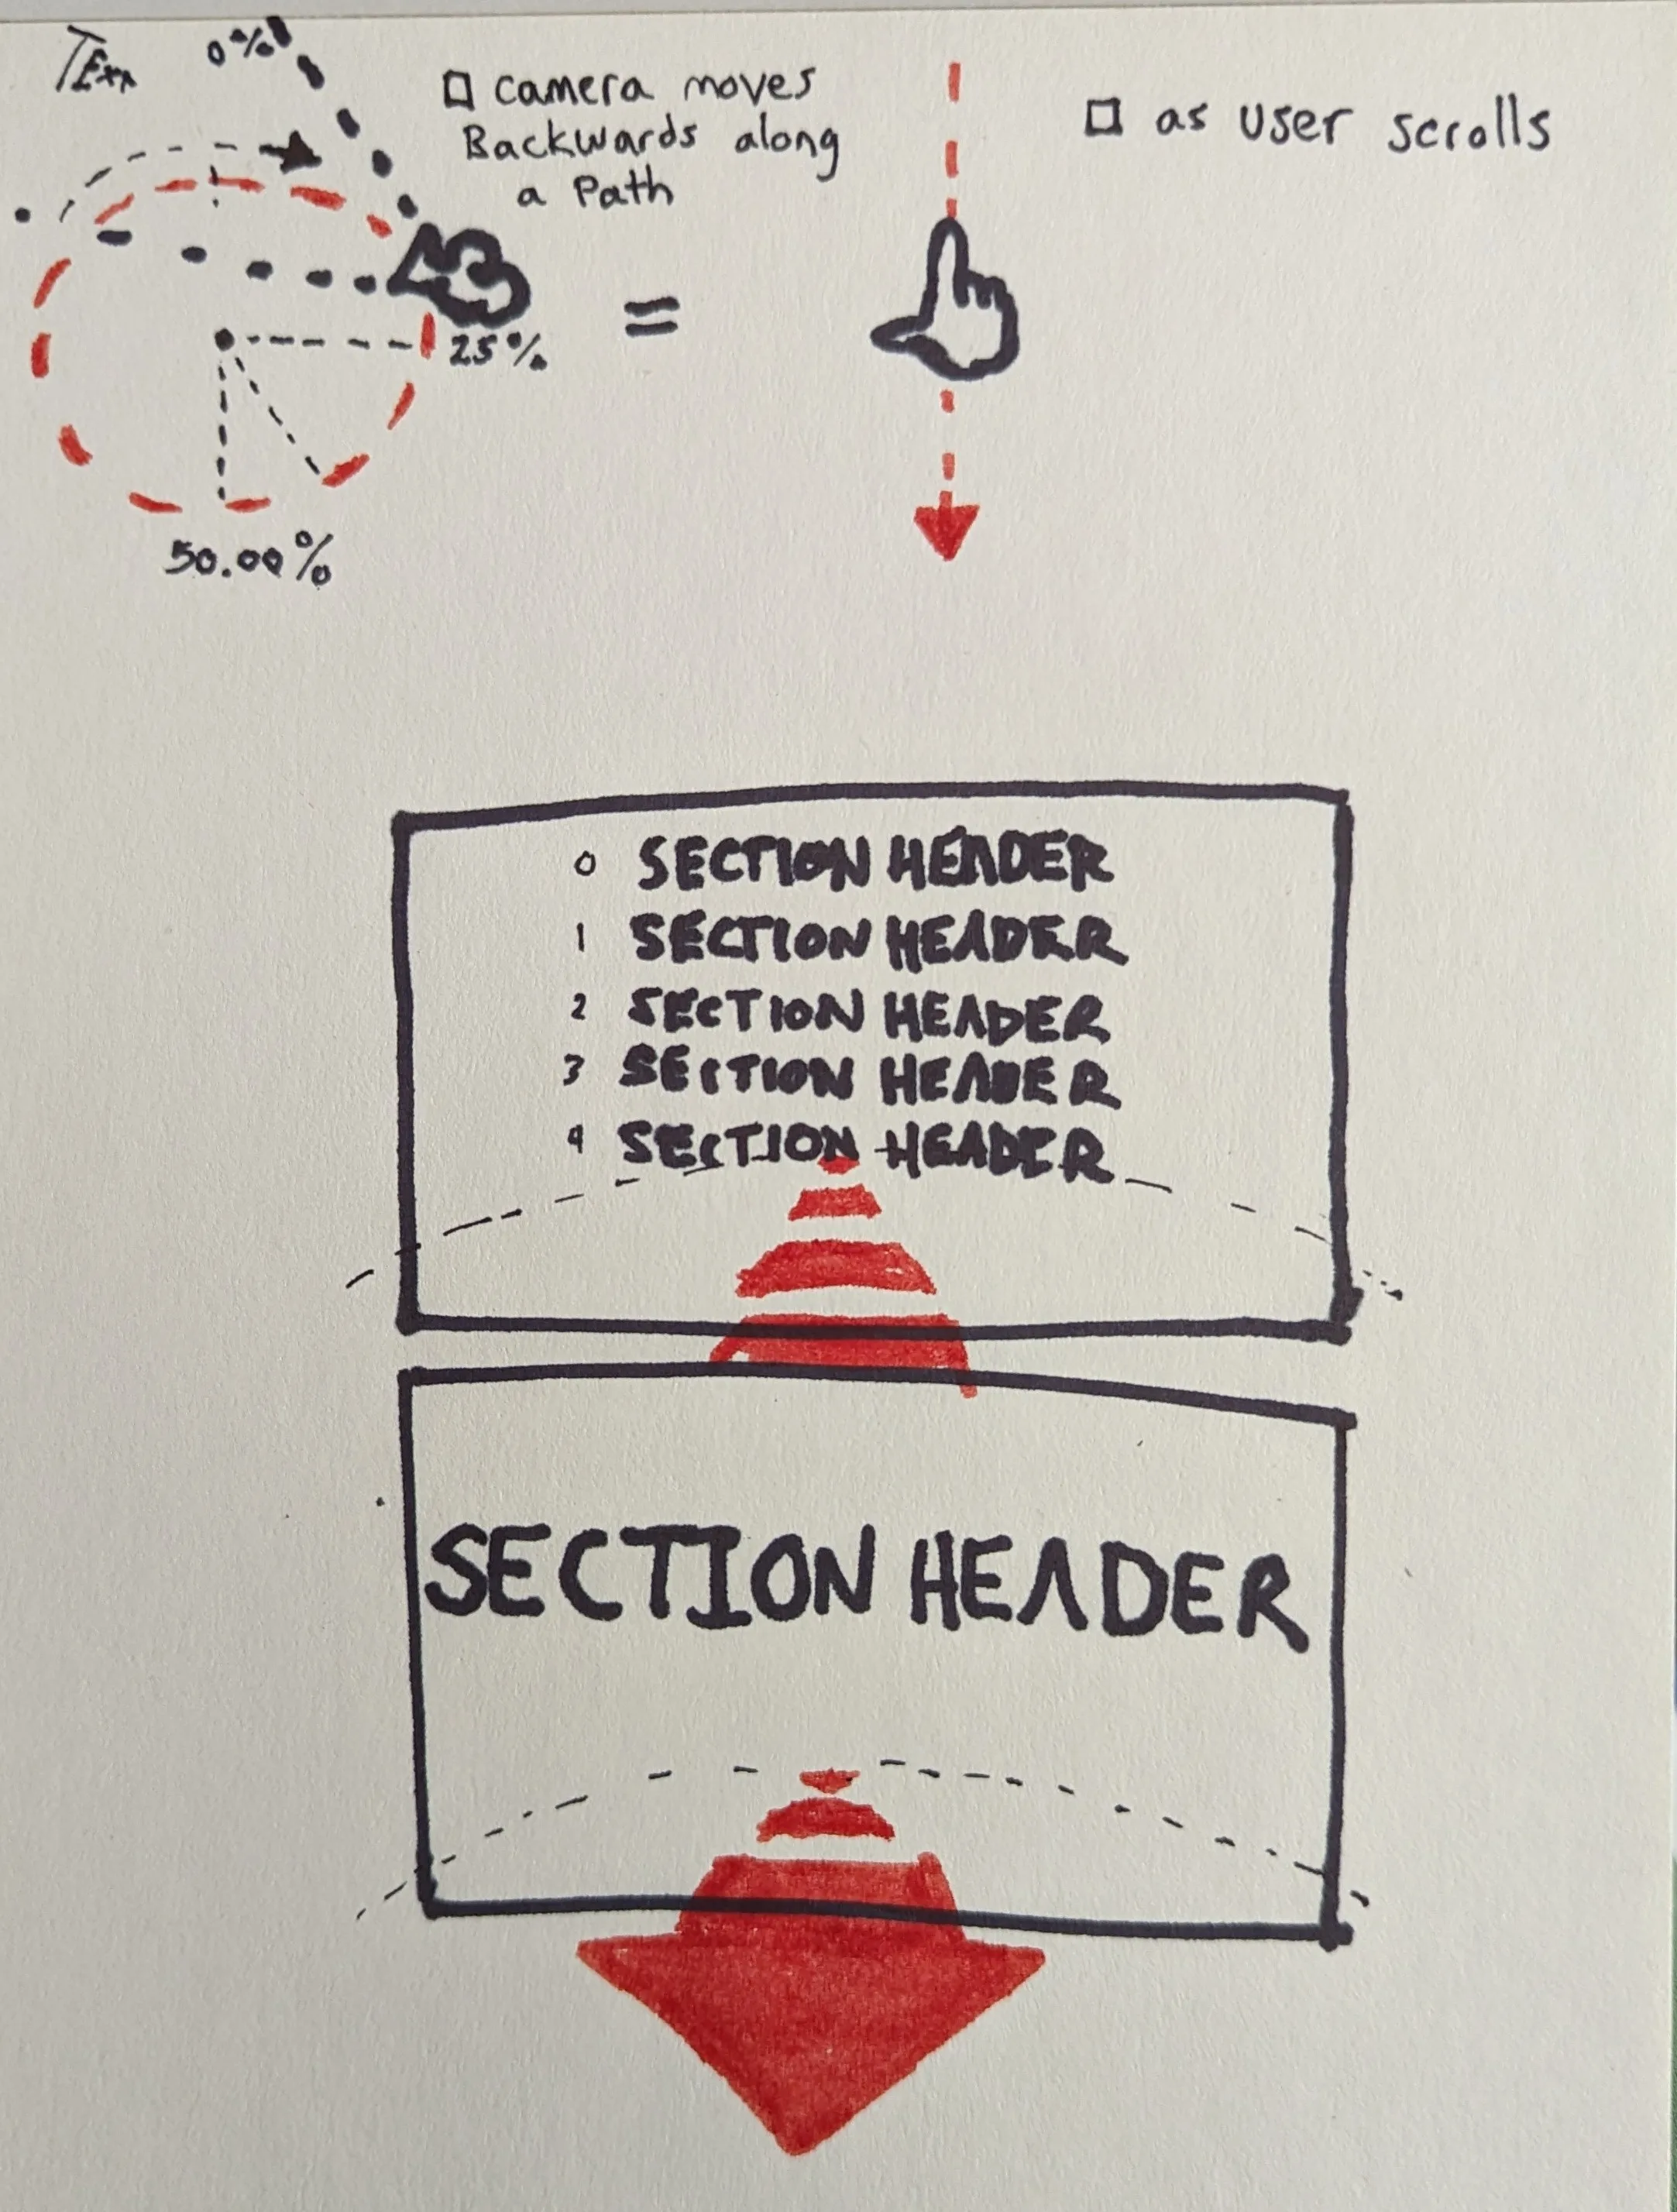 0%
□ camera moves
Backwards along
a Path
□ as user scrolls
25%
50.00%
0 SECTION HEADER
1 SECTION HEADER
2 SECTION HEADER
3 SECTION HEADER
4 SECTION HEADER
SECTION HEADER